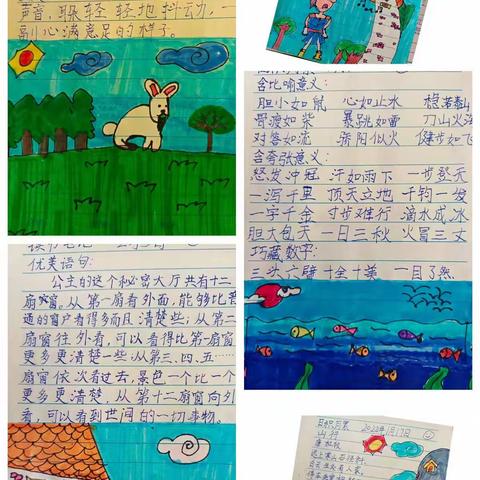 声音,朵轻轻地抖动,一
副心满意足的样子。
含比喻意义:
胆小如鼠 心如止水 稳若泰山
骨瘦如柴 暴跳如雷 刀山火海
对答如流 骄阳似火 健步如飞
含夸张意义:
怒发冲冠 汗如雨下 一步登天
一泻千里 顶天立地 千钧一发
一字千金 寸步难行 滴水成冰
胆大包天 一日三秋 火冒三丈
巧藏数字:
三头六臂 十全十美 一目了然
优美语句:
公主的这个秘密大厅共有十二
扇窗。从第一扇看外面,能够比普
通的窗户看得多而且清楚些;从第二
扇窗往外看,可以看得比第一扇窗
更多更清楚一些;从第三、四、五……
扇窗依次看过去,景色一个比一个
更多更清楚,从第十二扇窗向外
看,可以看到世间的一切事物。
日积月累
山行
唐 杜牧
远上寒山石径斜,
白云生处有人家。